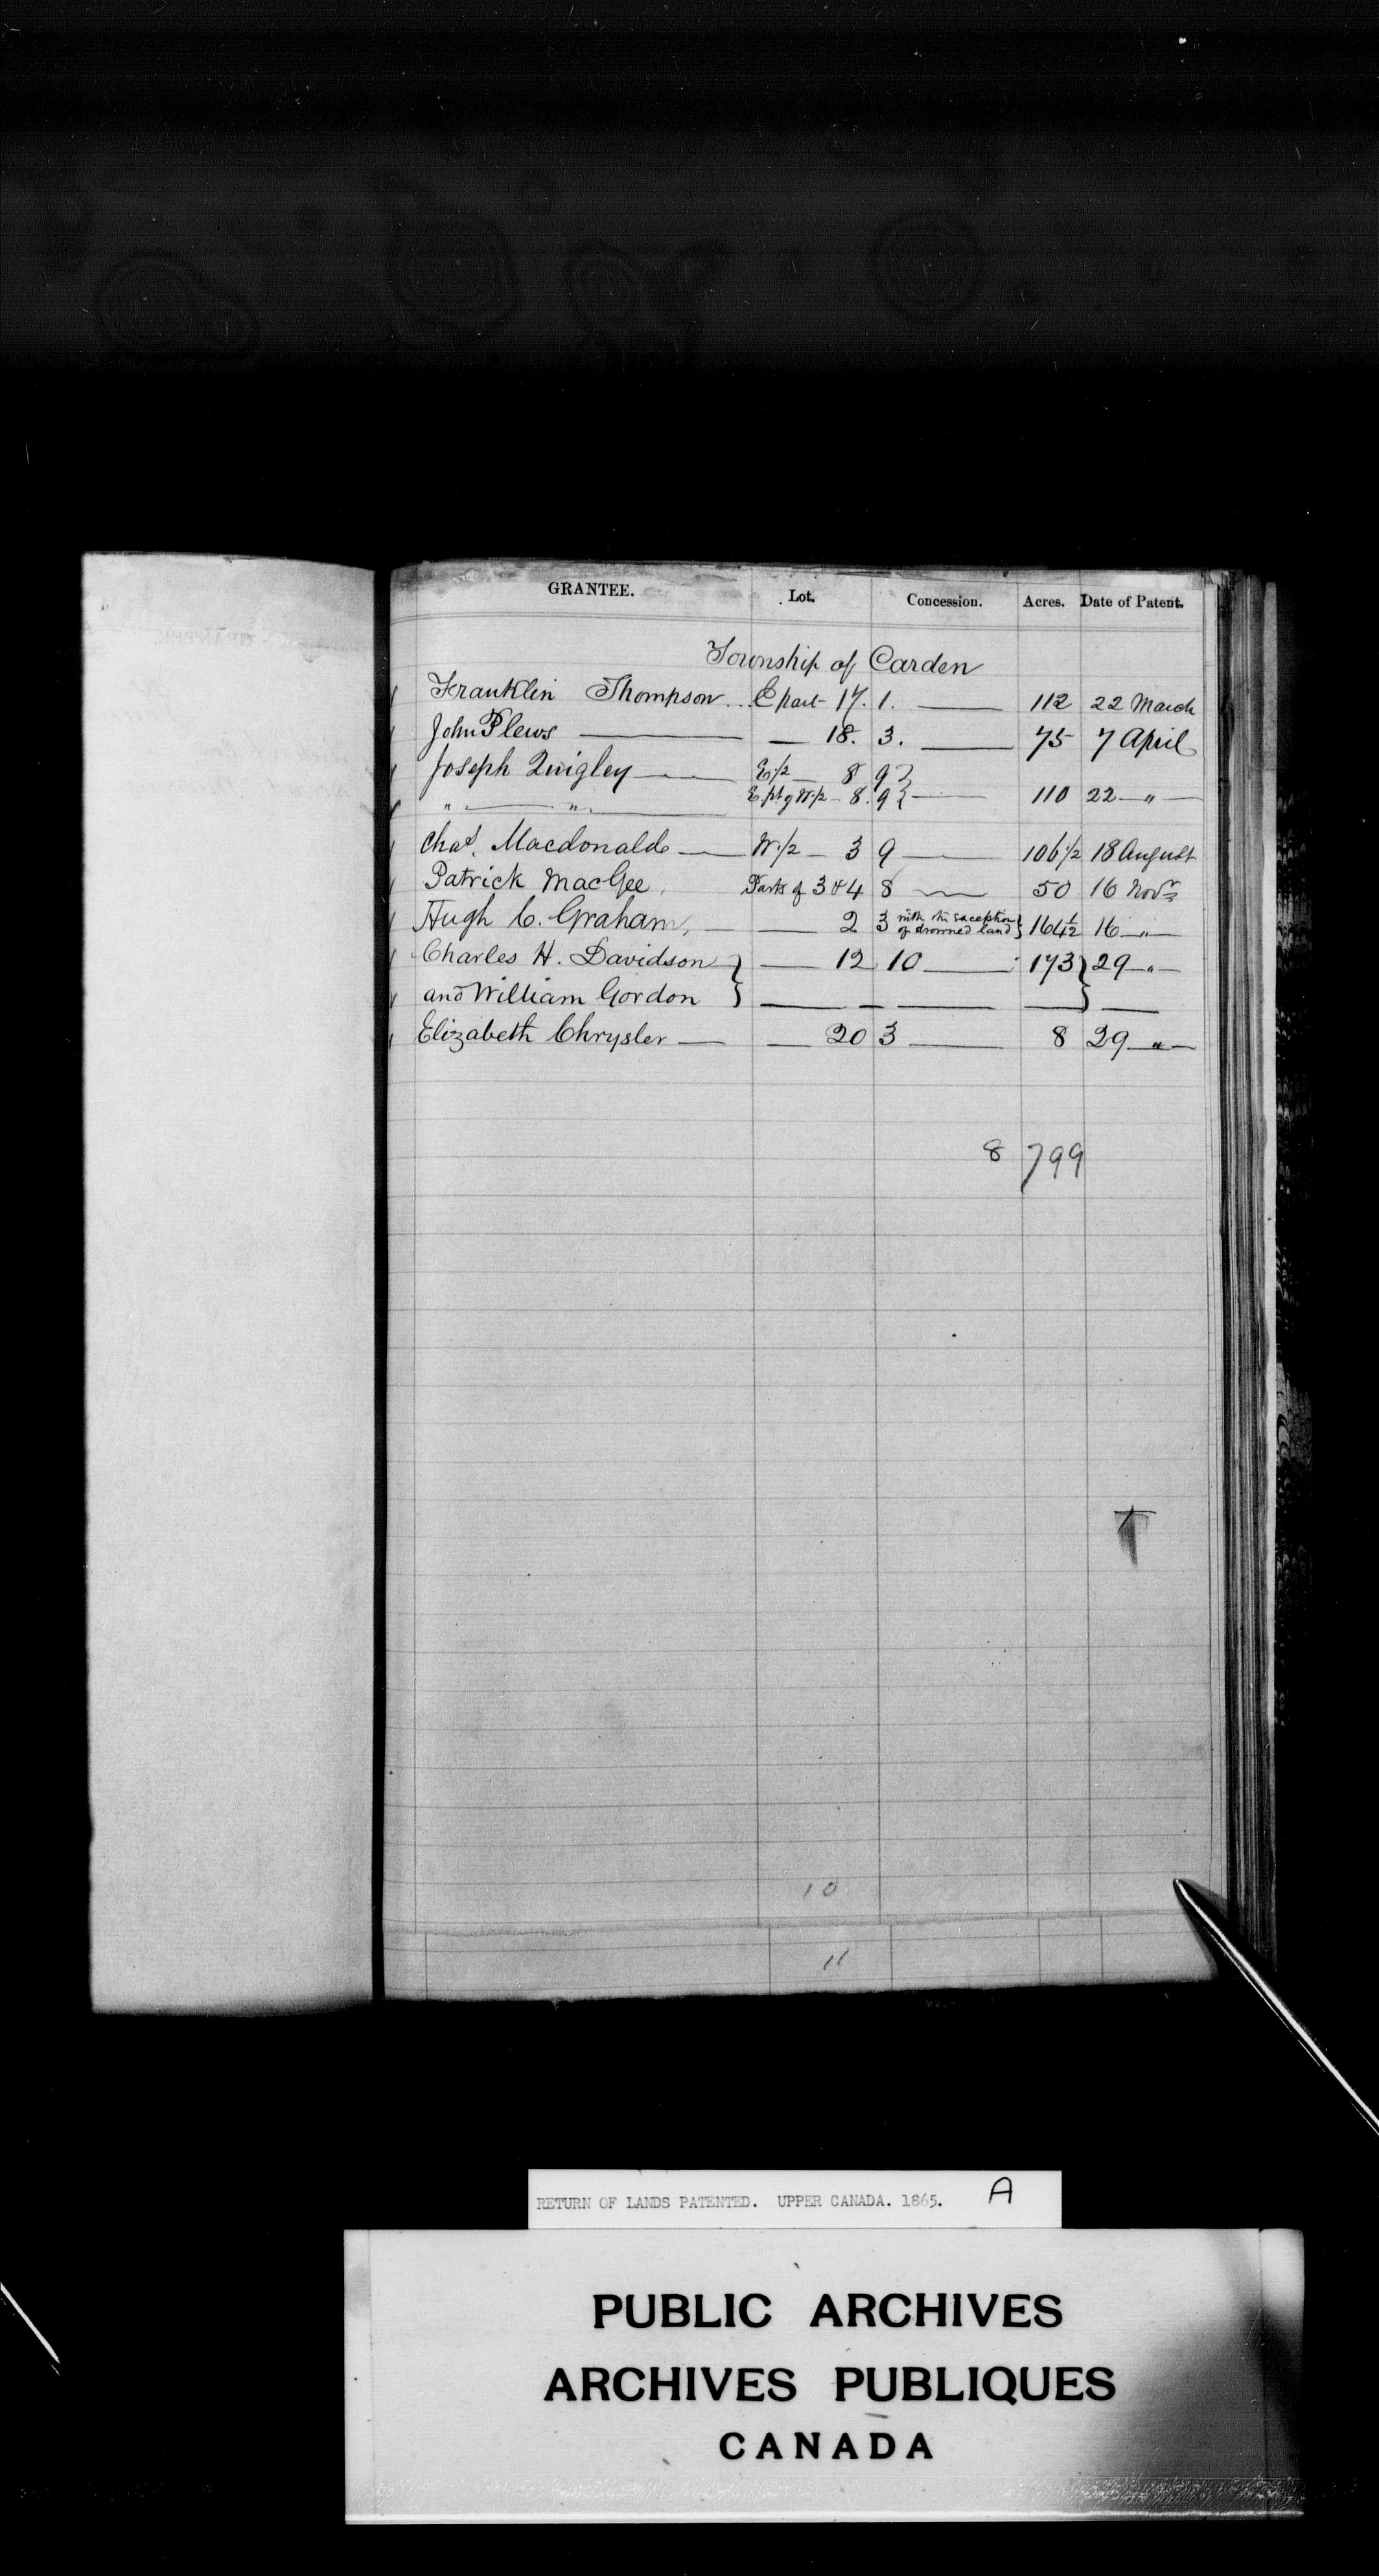 GRANTEE. Lot. Concession. Acres. Date of Patent.
Township of Carden
Franklin Thompson E part 17. 1. 112 22 March
John Plews 18. 3. 75 7 April
Joseph Quigley E 1/2 8 9
" " E pt of W 1/2 8. 9 110 22 "
Chas. Macdonald W 1/2 3 9 106 1/2 18 August
Patrick MacGee Parts of 3 & 4 8 50 16 Novr
Hugh C. Graham, 2 3 with the exception of drowned land 164 1/2 16 "
Charles H. Davidson 12 10 173 29 "
and William Gordon
Elizabeth Chrysler 20 3 8 29 "
8 799
10
11
RETURN OF LANDS PATENTED. UPPER CANADA. 1865. A
PUBLIC ARCHIVES
ARCHIVES PUBLIQUES
CANADA